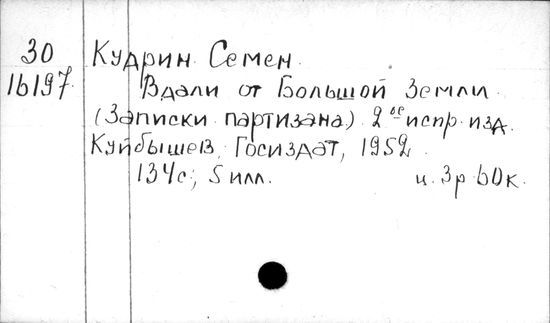 30
16197
Кудрин Семен
Вдали от Большой Земли
(Записки партизана) 2ое испр. изд.
Куйбышев, Госиздат, 1952.
134с; 5 илл. ц. 3р 60к.